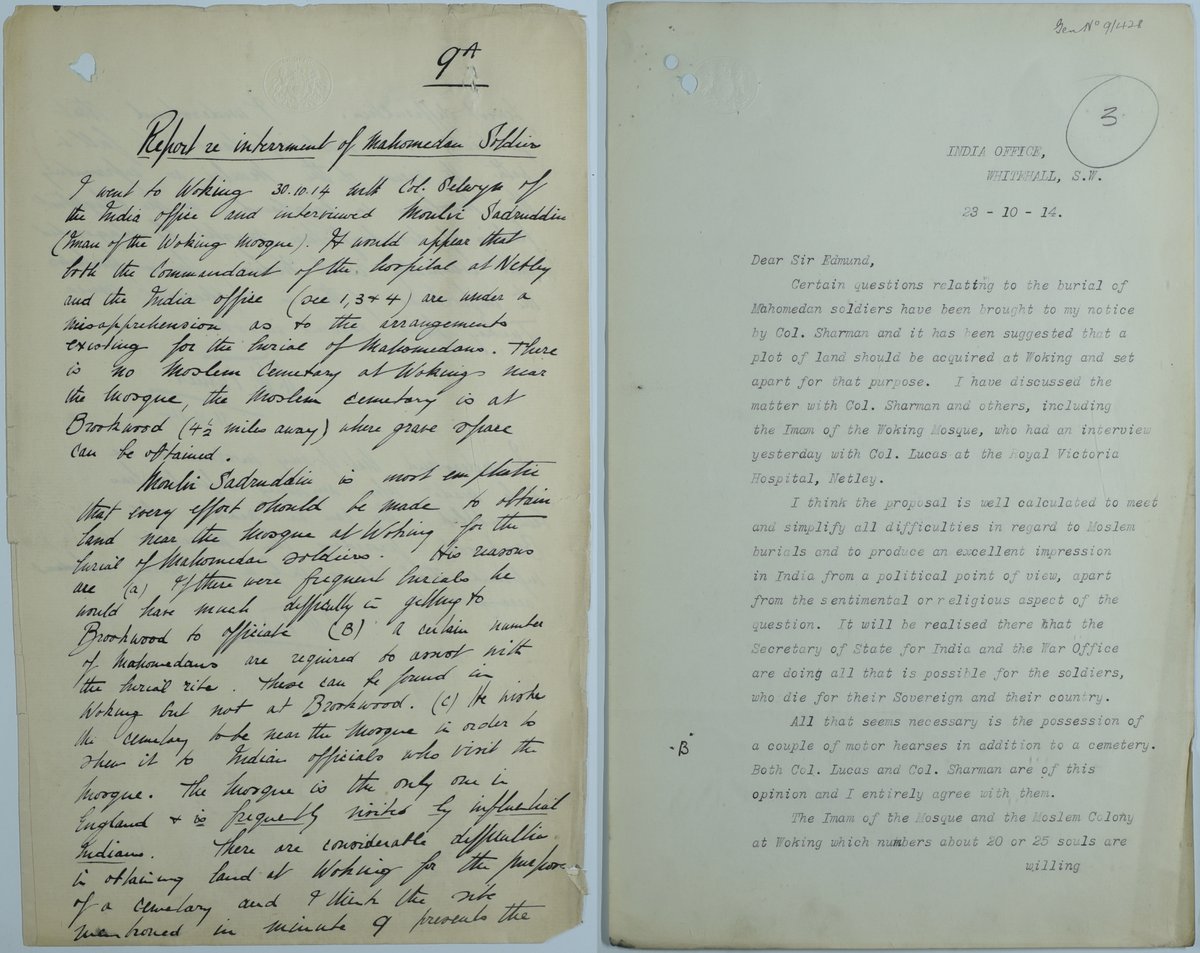 9A
Report re interrment of Mahomedan Soldier
I went to Woking 30.10.14 with Col. Selwyn of
the India office and interviewed Moulvi Sadruddin
(Iman of the Woking Mosque). It would appear that
both the Commandant of the hospital at Netley
and the India office (see 1, 3 & 4) are under a
misapprehension as to the arrangements
existing for the burial of Mahomedans. There
is no Moslem Cemetary at Woking near
the Mosque, the Moslem cemetary is at
Brookwood (4½ miles away) where grave space
can be obtained.
Moulvi Sadruddin is most emphatic
that every effort should be made to obtain
land near the Mosque at Woking for the
burial of Mahomedan soldiers. His reasons
are (a) If there were frequent burials he
would have much difficulty in getting to
Brookwood to officiate (B) a certain number
of Mahomedans are required to assist with
the burial rite. These can be found in
Woking but not at Brookwood. (C) He wishes
the cemetary to be near the Mosque in order to
shew it to Indian officials who visit the
mosque. The Mosque is the only one in
England & is frequently visited by influential
Indians. There are considerable difficulties
in obtaining land at Woking for the purpose
of a cemetary and I think the site
mentioned in minute 9 presents the
Gen No 9/428
3
INDIA OFFICE,
WHITEHALL, S.W.
23 - 10 - 14.
Dear Sir Edmund,
Certain questions relating to the burial of
Mahomedan soldiers have been brought to my notice
by Col. Sharman and it has been suggested that a
plot of land should be acquired at Woking and set
apart for that purpose. I have discussed the
matter with Col. Sharman and others, including
the Imam of the Woking Mosque, who had an interview
yesterday with Col. Lucas at the Royal Victoria
Hospital, Netley.
I think the proposal is well calculated to meet
and simplify all difficulties in regard to Moslem
burials and to produce an excellent impression
in India from a political point of view, apart
from the sentimental or religious aspect of the
question. It will be realised there that the
Secretary of State for India and the War Office
are doing all that is possible for the soldiers,
who die for their Sovereign and their country.
All that seems necessary is the possession of
"B"
a couple of motor hearses in addition to a cemetery.
Both Col. Lucas and Col. Sharman are of this
opinion and I entirely agree with them.
The Imam of the Mosque and the Moslem Colony
at Woking which numbers about 20 or 25 souls are
willing